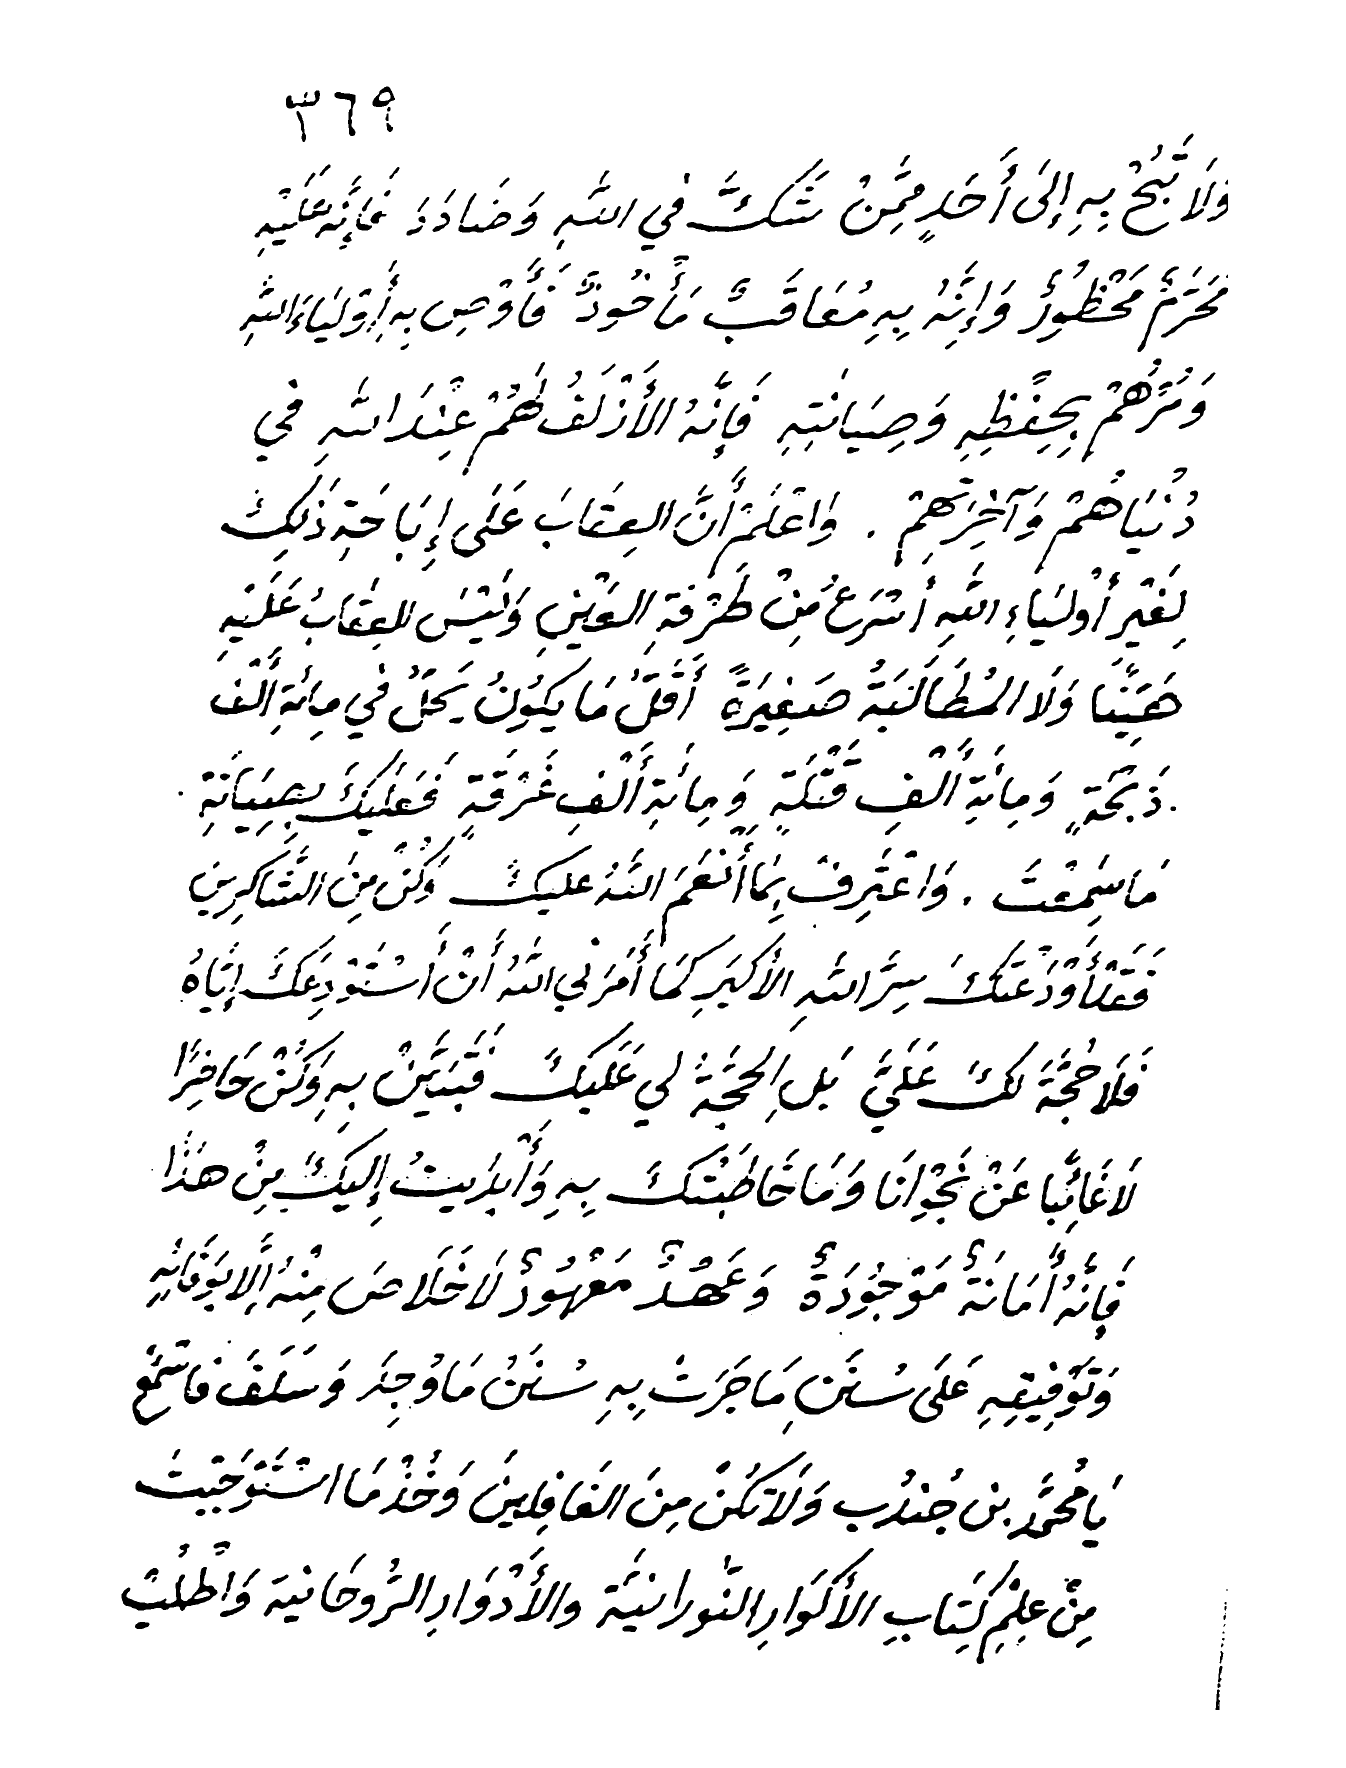 ٣٦٩
وَلَا تَبُحْ بِهِ إِلَى أَحَدٍ مِمَّنْ شَكَّ في اللهِ وَضَادَدَ فَإِنَّه عَلَيْهِ
مُحَرَّمٌ مَحْظُورٌ وَإِنَّهُ بِهِ مُعَاقَبٌ مَأْخُوذٌ فَأَوْصِ بِهِ أَوْلِيَاءَ اللهِ
وَمُرْهُمْ بِحِفْظِهِ وَصِيَانَتِهِ فَإِنَّهُ الأَزْلَفُ لَهُمْ عِنْدَ اللهِ في
دُنْيَاهُمْ وَآخِرَتِهِمْ . وَاعْلَمْ أَنَّ العِقَابَ عَلَى إِبَاحَةِ ذَلِكَ
لِغَيْرِ أَوْلِيَاءِ اللهِ أَسْرَعُ مِنْ طَرْفَةِ العَيْنِ وَلَيْسَ العِقَابُ عَلَيْهِ
هَيِّنًا وَلَا المُطَالَبَةُ صَغِيرَةً أَقَلُّ مَا يَكُونُ يَحِلُّ في مِائَةِ أَلْف
ذَبْحَةٍ وَمِائَةِ أَلْفِ قَتْلَةٍ وَمِائَةِ أَلْفِ غَرْقَةٍ فَعَلَيْكَ بِصِيَانَةِ
مَا سَمِعْتَ . وَاعْتَرِفْ بِمَا أَنْعَمَ اللهُ عليكَ وَكُنْ مِنَ الشَّاكِرِينَ
فَقَدْ أَوْدَعْتُكَ سِرَّ اللهِ الأَكْبَرِ كَمَا أَمَرَني اللهُ أَنْ أَسْتَوْدِعَكَ إِيَّاهُ
فَلَا حُجَّةَ لَكَ عَلَيَّ بَلِ الحُجَّةُ لي عَلَيكَ فَتَبَيَّنْ بِهِ وَكُنْ حَاضِرًا
لَا غَائِبًا عَنْ نَجْوَانَا وَمَا خَاطَبْتُكَ بِهِ وَأَبْدَيتُ إِلَيكَ مِنْ هَذَا
فَإِنَّهُ أَمَانَةٌ مَوْجُودَةٌ وَعَهْدٌ مَعْهُودٌ لَا خَلَاصَ مِنْهُ إِلَّا بِوَفَائِهِ
وَتَوْفِيقِهِ عَلَى سُنَنِ مَا جَرَتْ بِهِ سُنَنُ مَا وُجِدَ وَسَلَفَ فاسْمَعْ
يَا مُحَمَّد بن جُنْدُبِ وَلَا تَكُنْ مِنَ الغَافِلِينَ وَخُذْ مَا اسْتَوْجَبْتَ
مِنْ عِلْمِ كِتَابِ الأَكْوَارِ النُّورانِيَّةِ والأَدْوَارِ الرُّوحَانيةِ وَاطْلُبْ